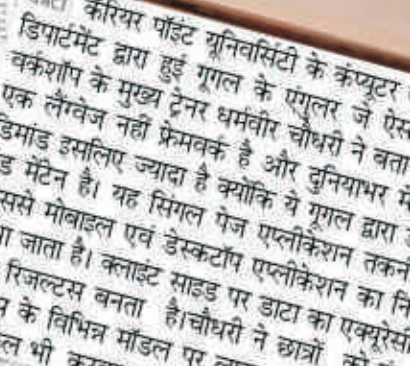 करियर पॉइंट यूनिवर्सिटी के कंप्यूटर
डिपार्टमेंट द्वारा हुई गूगल के एंगुलर जे ऐस
वर्कशॉप के मुख्य ट्रेनर धर्मवीर चौधरी ने बता
एक लैंग्वेज नहीं फ्रेमवर्क है और दुनियाभर में
डिमांड इसलिए ज्यादा है क्योंकि ये गूगल द्वारा
ड मेंटेन है। यह सिंगल पेज एप्लीकेशन तकन
ससे मोबाइल एवं डेस्कटॉप एप्लीकेशन का नि
ा जाता है। क्लाइंट साइड पर डाटा का एक्यूरेसी
रिजल्टस बनता है।चौधरी ने छात्रों को
के विभिन्न मॉडल पर
भी